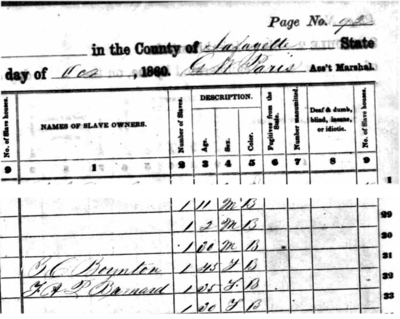 Page No. 92
in the County of Lafayette State
day of Oct , 1860. G W Paris Ass't Marshal.
No. of Slave houses. NAMES OF SLAVE OWNERS. Number of Slaves. DESCRIPTION. Age. Sex. Color. Fugitives from the State. Number manumitted. Deaf & dumb, blind, insane, or idiotic. No. of Slave houses.
9 1 2 3 4 5 6 7 8 9
1
1 11 M B 29
1 2 M B 30
1 20 M B 31
Boynton 1 45 F B 32
F A P Barnard 1 25 F B 33
1 20 F B